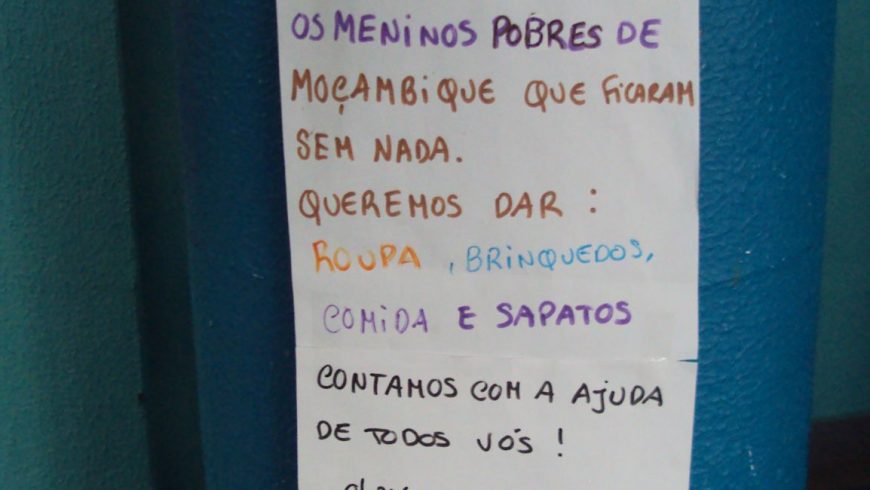 OS MENINOS POBRES DE
MOÇAMBIQUE QUE FICARAM
SEM NADA.
QUEREMOS DAR :
ROUPA , BRINQUEDOS,
COMIDA E SAPATOS
CONTAMOS COM A AJUDA
DE TODOS VÓS !